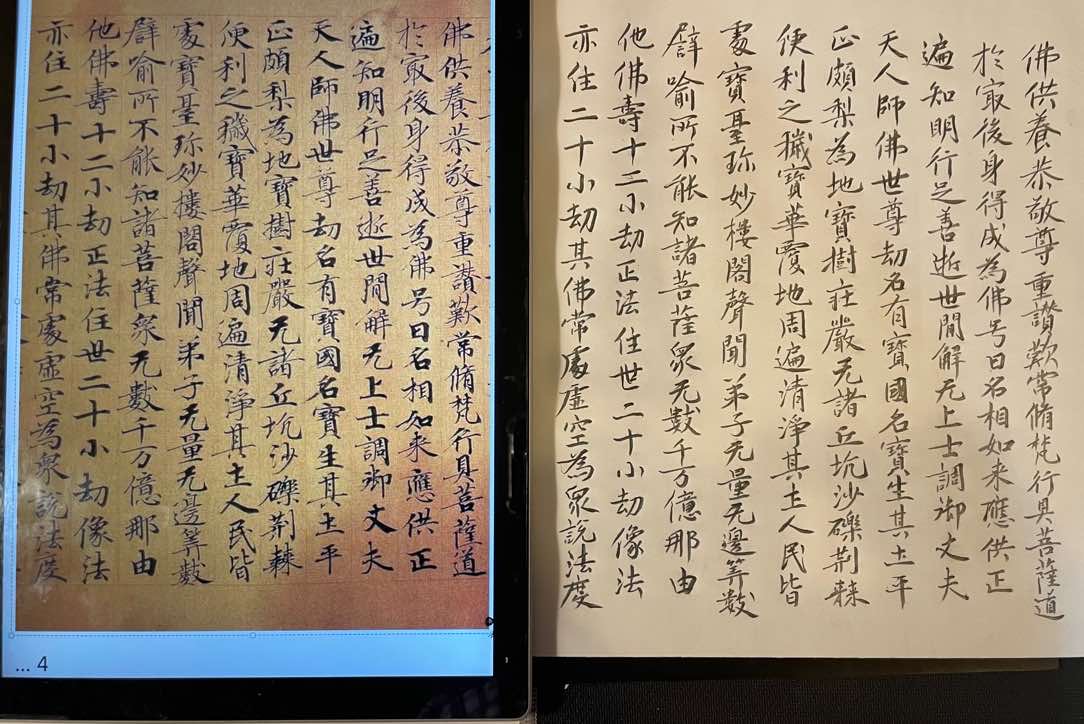 佛供養恭敬尊重讃歎常脩梵行具菩薩道
於㝡後身得成為佛号曰名相如来應供正
遍知明行足善逝世間解无上士調御丈夫
天人師佛世尊劫名有寶國名寶生其土平
正頗梨為地寶樹莊嚴无諸丘坑沙礫荊棘
便利之穢寶華覆地周遍清淨其土人民皆
處寶臺珎妙樓閣聲聞弟子无量无邊筭數
譬喻所不能知諸菩薩衆无數千万億那由
他佛壽十二小劫正法住世二十小劫像法
亦住二十小劫其佛常處虛空為衆說法度
... 4
佛供養恭敬尊重讃歎常脩梵行具菩薩道
於㝡後身得成為佛号曰名相如来應供正
遍知明行足善逝世間解无上士調御丈夫
天人師佛世尊劫名有寶國名寶生其土平
正頗梨為地寶樹莊嚴无諸丘坑沙礫荊棘
便利之穢寶華覆地周遍清淨其土人民皆
處寶臺珎妙樓閣聲聞弟子无量无邊筭數
譬喻所不能知諸菩薩衆无數千万億那由
他佛壽十二小劫正法住世二十小劫像法
亦住二十小劫其佛常處虛空為衆說法度